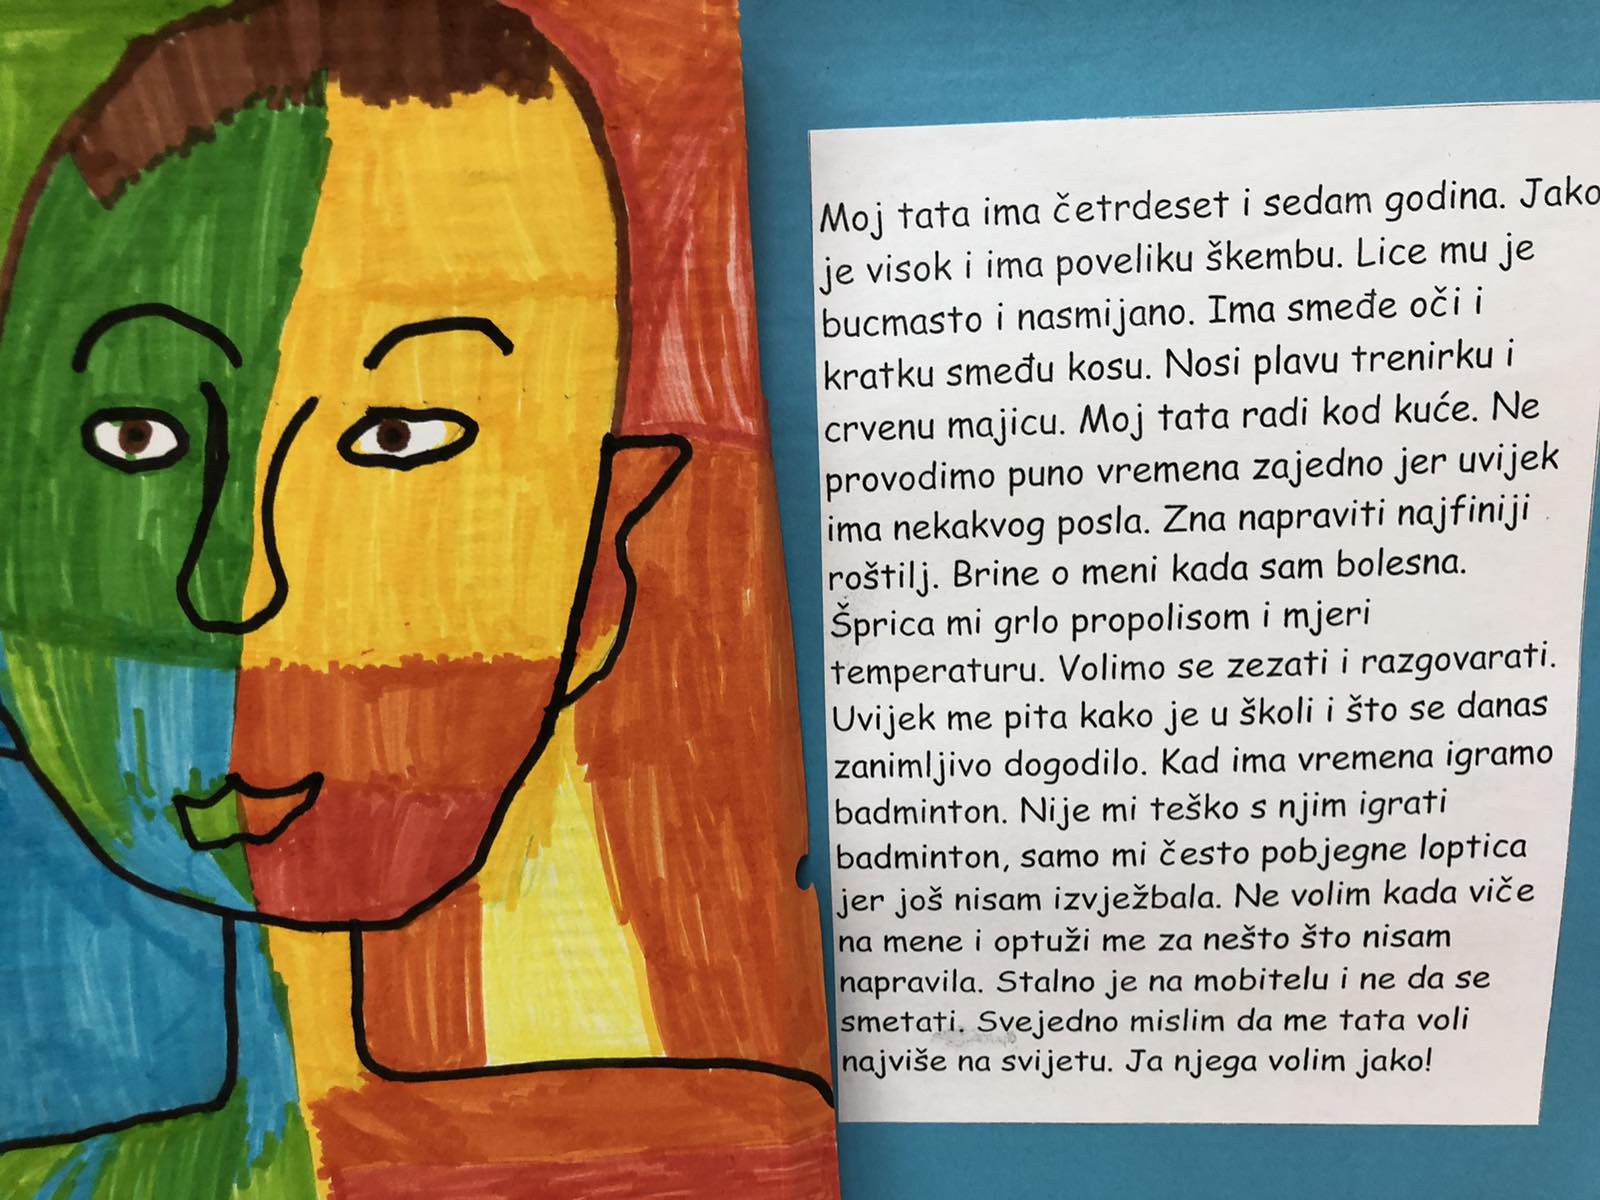 Moj tata ima četrdeset i sedam godina. Jako
je visok i ima poveliku škembu. Lice mu je
bucmasto i nasmijano. Ima smeđe oči i
kratku smeđu kosu. Nosi plavu trenirku i
crvenu majicu. Moj tata radi kod kuće. Ne
provodimo puno vremena zajedno jer uvijek
ima nekakvog posla. Zna napraviti najfiniji
roštilj. Brine o meni kada sam bolesna.
Šprica mi grlo propolisom i mjeri
temperaturu. Volimo se zezati i razgovarati.
Uvijek me pita kako je u školi i što se danas
zanimljivo dogodilo. Kad ima vremena igramo
badminton. Nije mi teško s njim igrati
badminton, samo mi često pobjegne loptica
jer još nisam izvježbala. Ne volim kada viče
na mene i optuži me za nešto što nisam
napravila. Stalno je na mobitelu i ne da se
smetati. Svejedno mislim da me tata voli
najviše na svijetu. Ja njega volim jako!